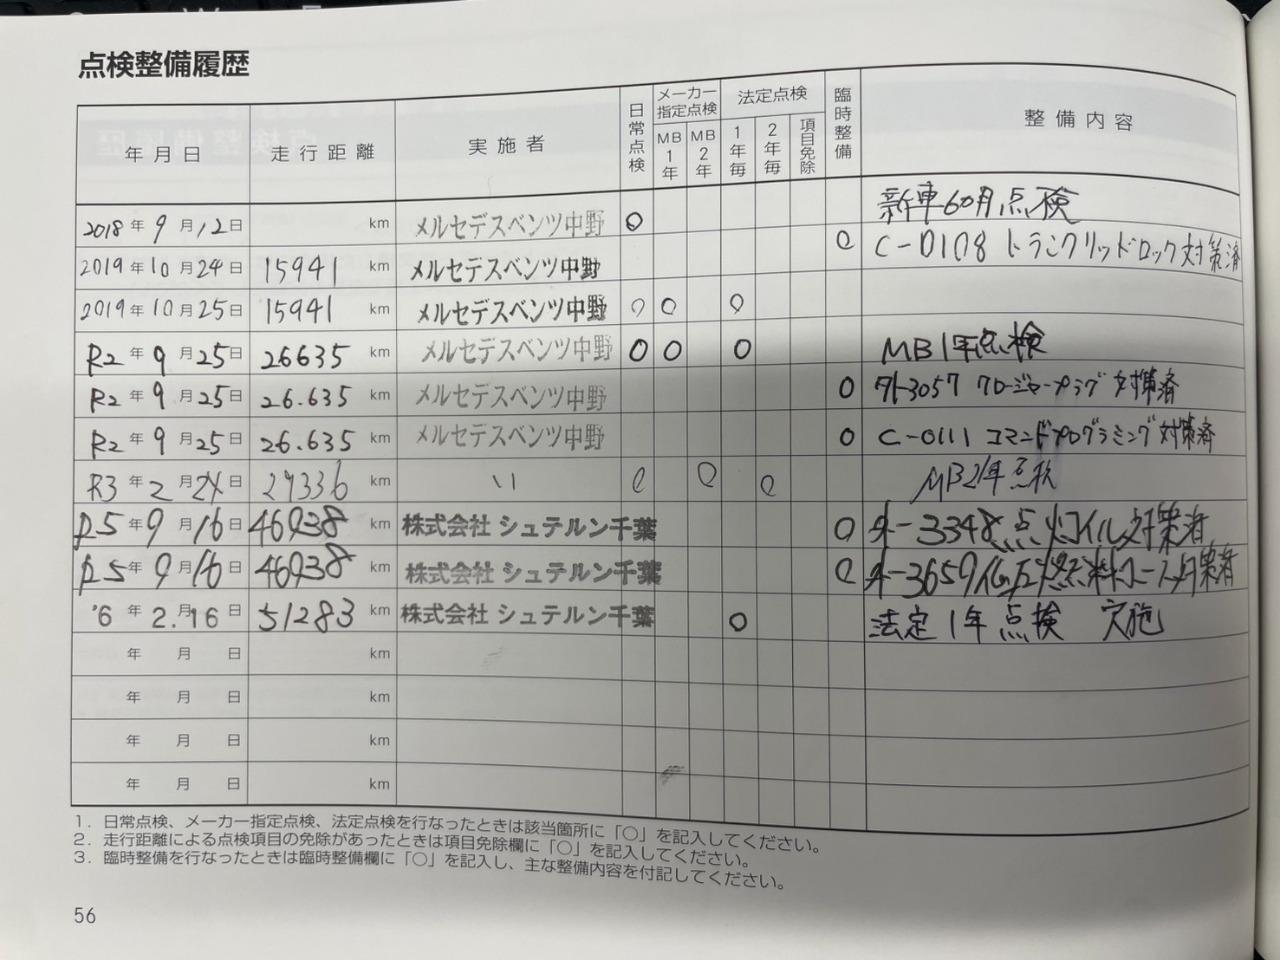 点検整備履歴
年月日 走行距離 実施者 日常点検 メーカー指定点検 MB1年 MB2年 法定点検 1年毎 2年毎 項目免除 臨時整備 整備内容
2018年9月12日 km メルセデスベンツ中野 ○ 新車6ヵ月点検
2019年10月24日 15941 km メルセデスベンツ中野 ○ C-0108 トランクリッドロック対策済
2019年10月25日 15941 km メルセデスベンツ中野 ○ ○ ○
R2年9月25日 26635 km メルセデスベンツ中野 ○ ○ ○ MB1年点検
R2年9月25日 26.635 km メルセデスベンツ中野 ○ 外-3057 クロージャープラグ対策済
R2年9月25日 26.635 km メルセデスベンツ中野 ○ C-0111 コマンドプログラミング対策済
R3年2月24日 27336 km 〃 ○ ○ ○ MB2年点検
R5年9月16日 46938 km 株式会社 シュテルン千葉 ○ 外-3348 点火コイル対策済
R5年9月16日 46938 km 株式会社 シュテルン千葉 ○ 外-3659 低圧燃料 対策済
'6年2.月16日 51283 km 株式会社 シュテルン千葉 ○ 法定1年点検 実施
年 月 日 km
年 月 日 km
年 月 日 km
年 月 日 km
1. 日常点検、メーカー指定点検、法定点検を行なったときは該当箇所に「○」を記入してください。
2. 走行距離による点検項目の免除があったときは項目免除欄に「○」を記入してください。
3. 臨時整備を行なったときは臨時整備欄に「○」を記入し、主な整備内容を付記してください。
56